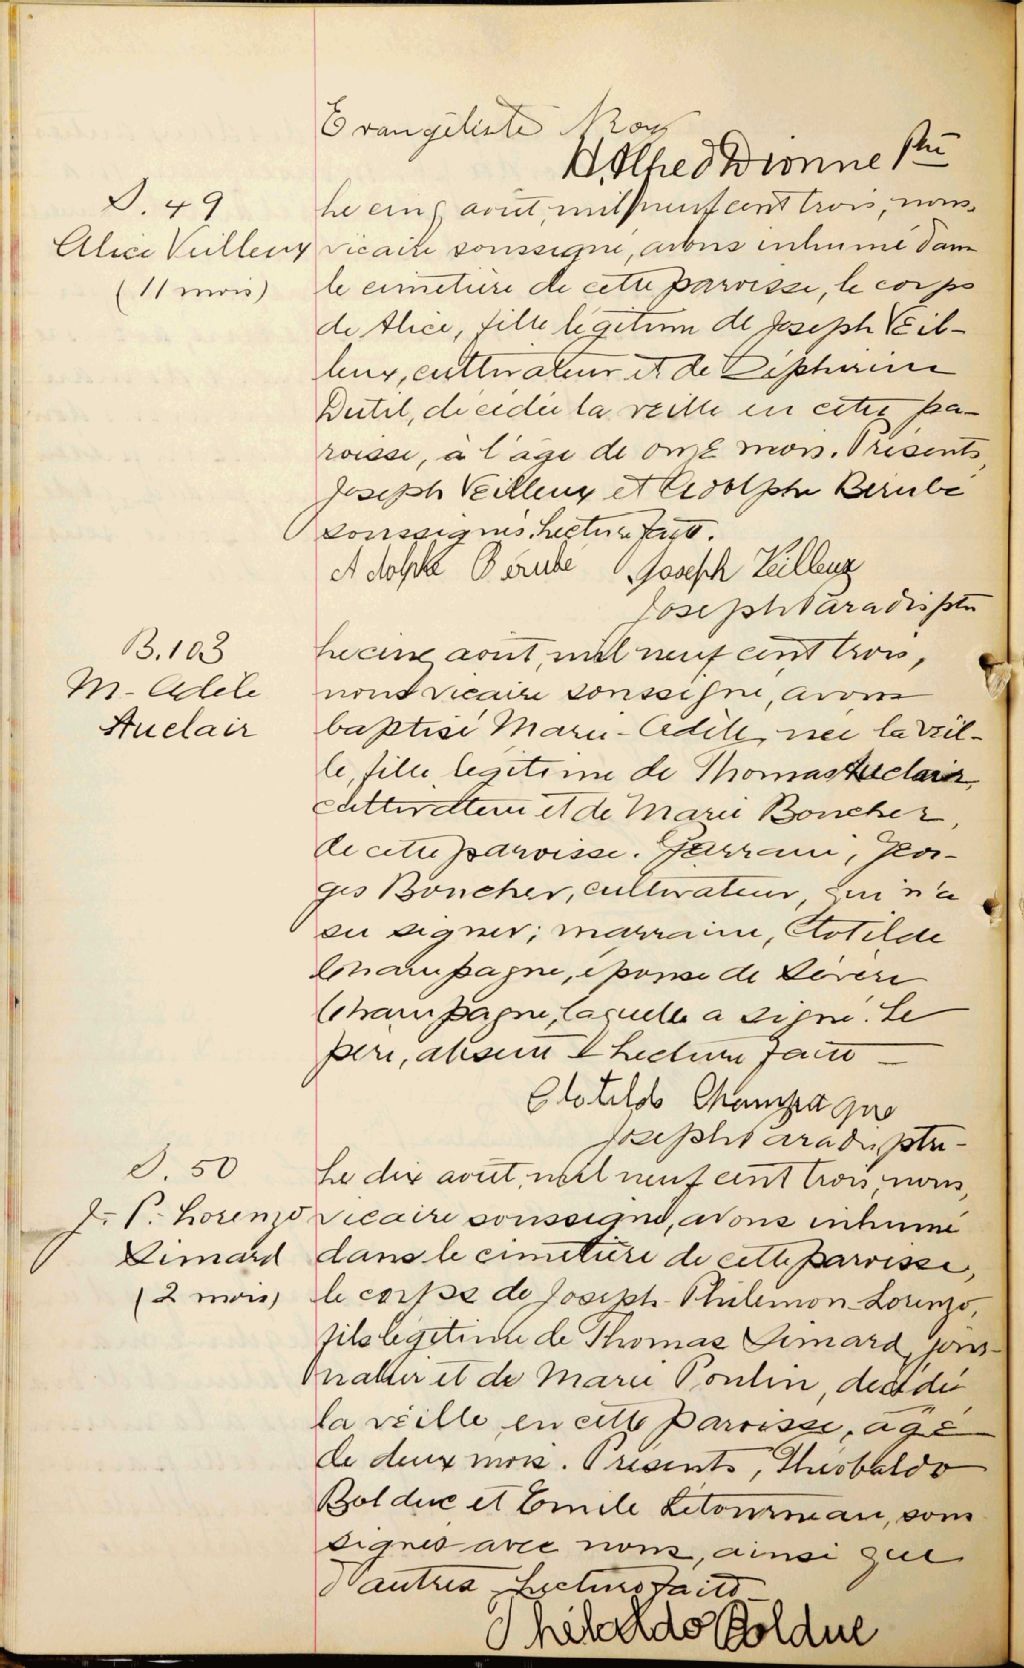 Evangéliste Roy
H. Alfred Dionne Ptre
S. 49
Alice Veilleux
(11 mois)
Le cinq août, mil neuf cent trois, nous,
vicaire soussigné, avons inhumé dans
le cimetière de cette paroisse, le corps
de Alice, fille légitime de Joseph Veil-
leux, cultivateur et de Zéphirine
Dutil, décédée la veille en cette pa-
roisse, à l'âge de onze mois. Présents,
Joseph Veilleux et Adolphe Bérubé
soussignés. Lecture faite.
Adolphe Bérubé Joseph Veilleux
Joseph Paradis ptre
B. 103
M- Adèle
Auclair
Le cinq août, mil neuf cent trois,
nous vicaire soussigné, avons
baptisé Marie-Adèle, née la veil-
le, fille légitime de Thomas Auclair,
cultivateur et de Marie Boucher,
de cette paroisse. Parrain, Geor-
ges Boucher, cultivateur, qui n'a
su signer; marraine, Clotilde
Champagne, épouse de Sévère
Champagne, laquelle a signé. Le
père, absent. Lecture faite —
Clotilde Champagne
Joseph Paradis ptre-
S. 50
J.- P.- Lorenzo
Simard
(2 mois)
Le dix août, mil neuf cent trois, nous,
vicaire soussigné, avons inhumé
dans le cimetière de cette paroisse,
le corps de Joseph-Philemon-Lorenzo,
fils légitime de Thomas Simard, jour-
nalier et de Marie Poulin, décédé
la veille, en cette paroisse, âgé
de deux mois. Présents, Théobaldo
Bolduc et Emile Létourneau, sous
signés avec nous, ainsi que
d'autres. Lecture faite
Théobaldo Bolduc